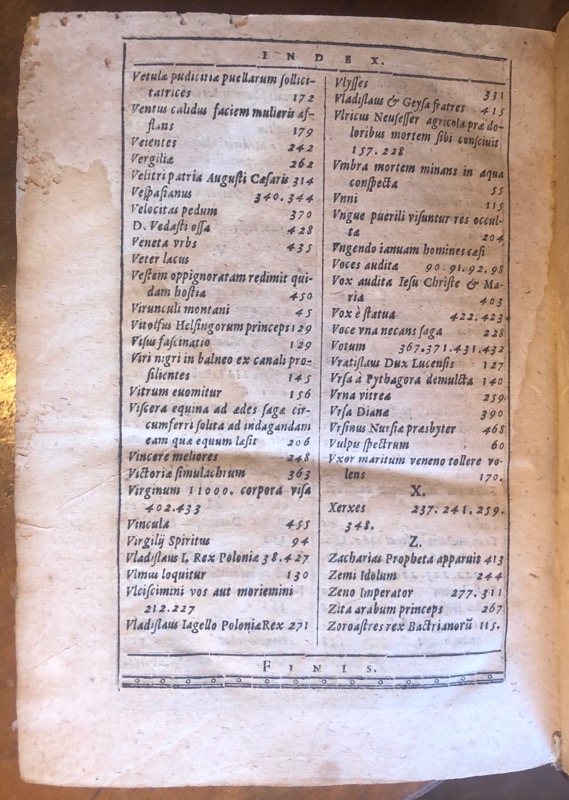 INDEX.
Vetulæ pudicitiæ puellarum ſollici-
tatrices 172
Ventus calidus faciem mulieris af-
flans 179
Veientes 242
Vergiliæ 262
Velitri patria Auguſti Cæſaris 314
Veſpaſianus 340.344
Velocitas pedum 370
D. Vedaſti oſſa 428
Veneta vrbs 435
Veter lacus
Veſtem oppignoratam redimit qui-
dam hoſtia 450
Virunculi montani 45
Vitolfus Helſingorum princeps 129
Viſus faſcinatio 129
Viri nigri in balneo ex canali pro-
ſilientes 145
Vitrum euomitur 156
Viſcera equina ad ædes ſagæ cir-
cumferri ſolita ad indagandam
eam quæ equum læſit 206
Vincere meliores 248
Victoriæ ſimulachrum 363
Virginum 11000. corpora viſa
402.433
Vincula 455
Virgilij Spiritus 94
Vladiſlaus I. Rex Poloniæ 38.427
Vlmus loquitur 130
Vlciſcimini vos aut moriemini
212.227
Vladiſlaus Iagello Poloniæ Rex 271
Vlyſſes 331
Vladiſlaus & Geyſa fratres 415
Vlricus Neuſeſſer agricola præ do-
loribus mortem ſibi conſciuit
157.228
Vmbra mortem minans in aqua
conſpecta 55
Vnni 115
Vngue puerili viſuntur res occul-
tæ 204
Vngendo ianuam homines cæſi
Voces auditæ 90.91.92.98
Vox audita Ieſu Chriſte & Ma-
ria 403
Vox è ſtatua 422.423
Voce vna necans ſaga 228
Votum 367.371.431.432
Vratiſlaus Dux Lucenſis 127
Vrſa à Pythagora demulcta 140
Vrna vitrea 259
Vrſa Dianæ 390
Vrſinus Nurſiæ præsbyter 468
Vulpis ſpectrum 60
Vxor maritum veneno tollere vo-
lens 170.
X.
Xerxes 237.241.259.
348.
Z.
Zacharias Propheta apparuit 413
Zemi Idolum 244
Zeno Imperator 277.311
Zita arabum princeps 267
Zoroaſtres rex Bactrianorū 115.
FINIS.